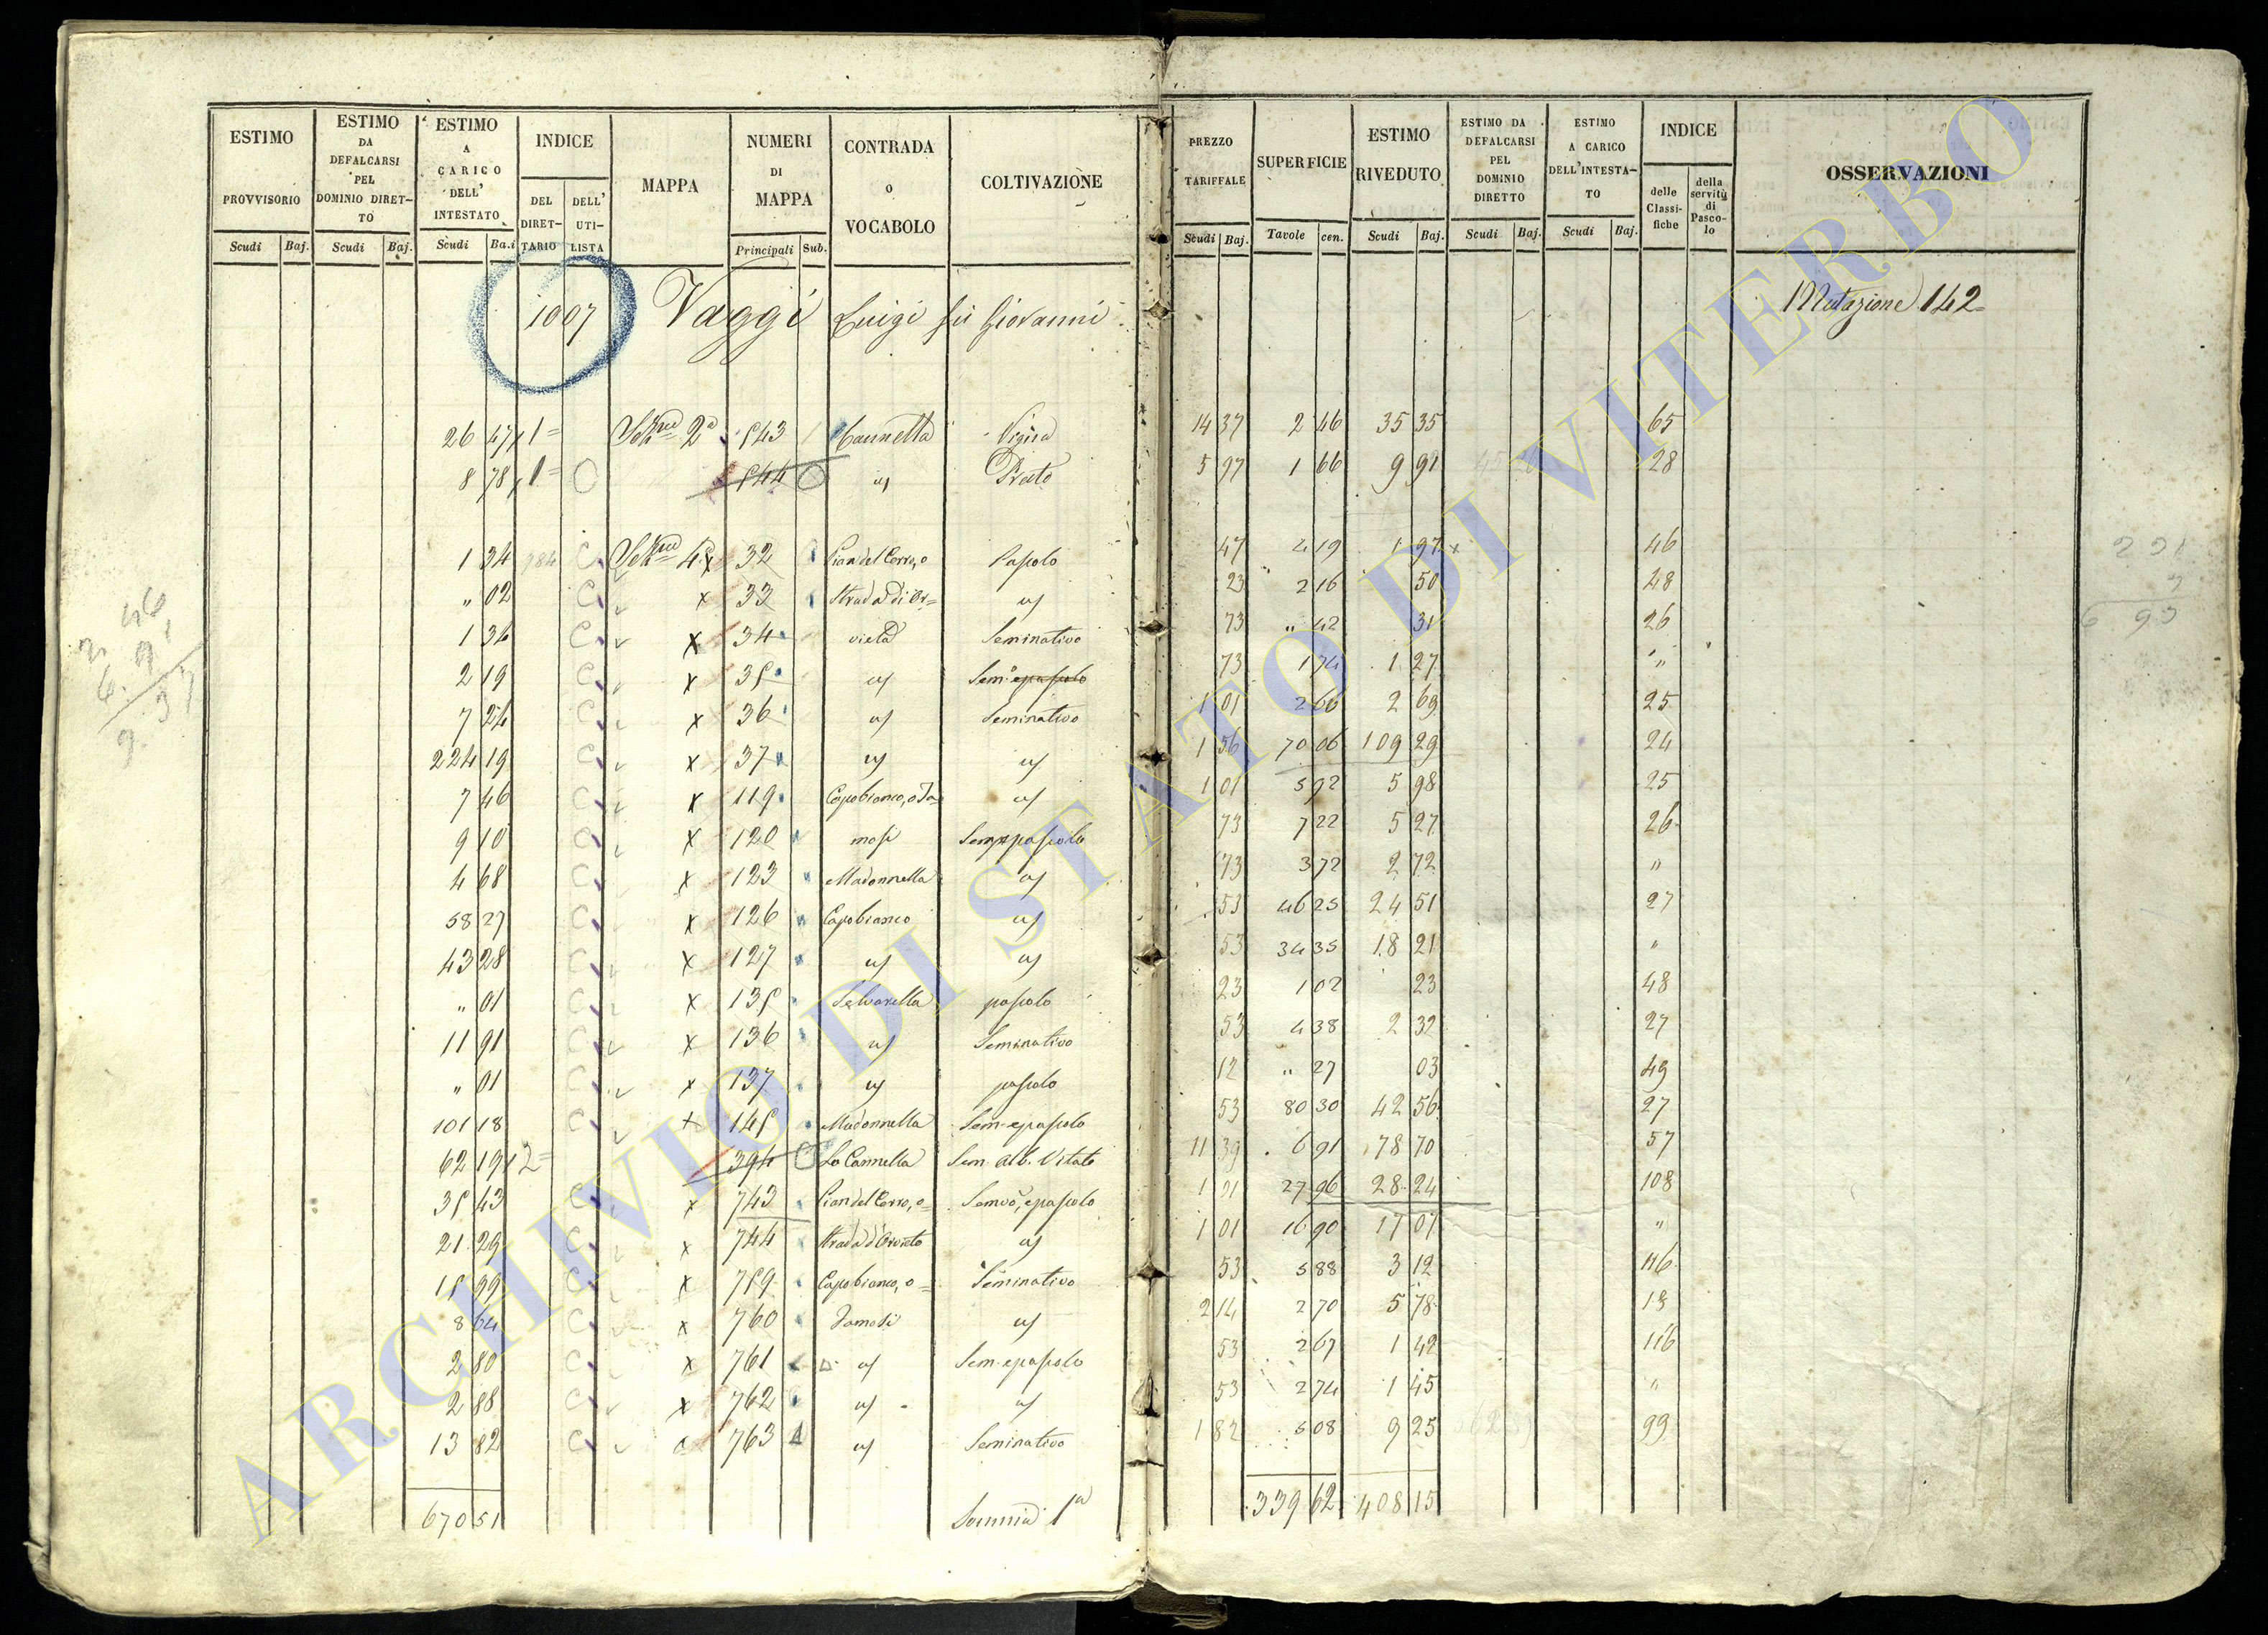 ESTIMO PROVVISORIO Scudi Baj.
ESTIMO DA DEFALCARSI PEL DOMINIO DIRET-TO Scudi Baj.
ESTIMO A CARICO DELL' INTESTATO Scudi Ba.i
INDICE DEL DIRET-TARIO DELL' UTI-LISTA
MAPPA
NUMERI DI MAPPA Principali Sub.
CONTRADA O VOCABOLO
COLTIVAZIONE
PREZZO TARIFFALE Scudi Baj.
SUPERFICIE Tavole cen.
ESTIMO RIVEDUTO Scudi Baj.
ESTIMO DA DEFALCARSI PEL DOMINIO DIRETTO Scudi Baj.
ESTIMO A CARICO DELL'INTESTA-TO Scudi Baj.
INDICE delle Classi-fiche della servitù di Pasco-lo
OSSERVAZIONI
1007 Vaggi Luigi fu Giovanni Mutazione 142
26 47 1= 2a 543 Cannella Vigna 14 37 2 46 35 35 65
8 78 1= 544 Prato 5 97 1 66 9 91 28
1 34 984 32 Pian del Cerro, o Pascolo 47 4 19 1 97 46
" 02 x 33 Strada di Or= 23 2 16 50 48
1 36 x 34 vieto Seminativo 73 " 42 31 26
2 19 x 35 Sem. e pascolo 73 1 74 1 27 "
7 24 x 36 Seminativo 1 01 2 66 2 69 25
224 19 x 37 1 56 70 06 109 29 24
7 46 x 119 Capobianco, o Ta 1 01 5 92 5 98 25
9 10 x 120 mosi Sem. e pascolo 73 7 22 5 27 26
4 68 x 123 Madonnella 73 3 72 2 72 "
58 27 x 126 Capobianco 53 46 25 24 51 27
43 28 x 127 53 34 35 18 21 "
" 01 x 135 Selvarella pascolo 23 1 02 23 48
11 91 x 136 Seminativo 53 4 38 2 32 27
" 01 x 137 pascolo 12 " 27 03 49
101 18 x 145 Madonnella Sem. e pascolo 53 80 30 42 56 27
62 19 2= 394 La Cannella Sem. alb. Vitato 11 39 6 91 78 70 57
35 43 x 743 Pian del Cerro, o= e pascolo 1 01 27 96 28 24 108
21 29 x 744 Strada d'Orvieto 1 01 16 90 17 07 "
15 99 x 759 Capobianco, o= Seminativo 53 5 88 3 12 116
8 64 x 760 Tamosi 2 14 2 70 5 78 18
2 80 x 761 Sem. e pascolo 53 2 67 1 42 116
2 88 x 762 53 2 74 1 45 "
13 82 763 Seminativo 1 82 5 08 9 25 99
670 51 Somma 1a 339 62 408 15
ARCHIVIO DI STATO DI VITERBO